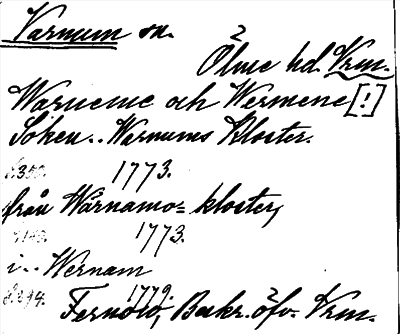 Varnum sn.
Ölme hd. Vrm.
Warneme och Wermene [!]
Soken.. Warnums Kloster.
S. 350. 1773.
från Wärnamo= kloster,
1773.
i.. Wernam
S. 294. 1779.
Fernow, Beskr. öfv. Vrm.